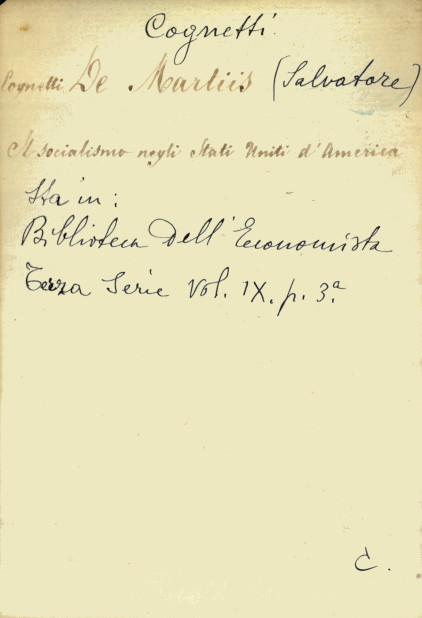 Cognetti
Cognetti De Martiis (Salvatore)
Il socialismo negli Stati Uniti d'America
Sta in:
Biblioteca Dell'Economista
Terza Serie Vol. IX. p. 3.ª
C.